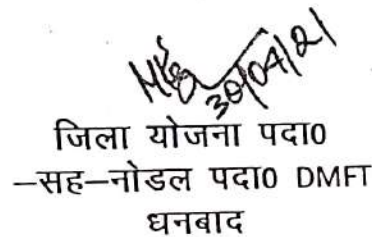 30/04/21
जिला योजना पदा0
–सह–नोडल पदा0 DMFT
धनबाद